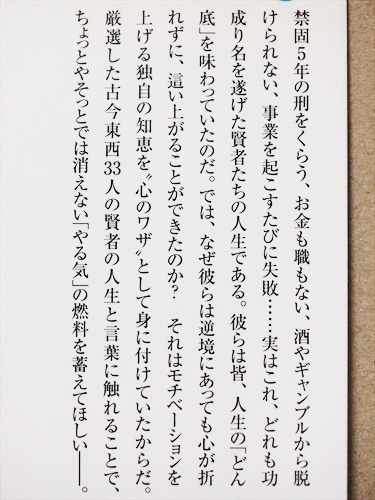 禁固5年の刑をくらう、お金も職もない、酒やギャンブルから脱
けられない、事業を起こすたびに失敗……実はこれ、どれも功
成り名を遂げた賢者たちの人生である。彼らは皆、人生の「どん
底」を味わっていたのだ。では、なぜ彼らは逆境にあっても心が折
れずに、這い上がることができたのか？　それはモチベーションを
上げる独自の知恵を〝心のワザ〟として身に付けていたからだ。
厳選した古今東西33人の賢者の人生と言葉に触れることで、
ちょっとやそっとでは消えない「やる気」の燃料を蓄えてほしい――。